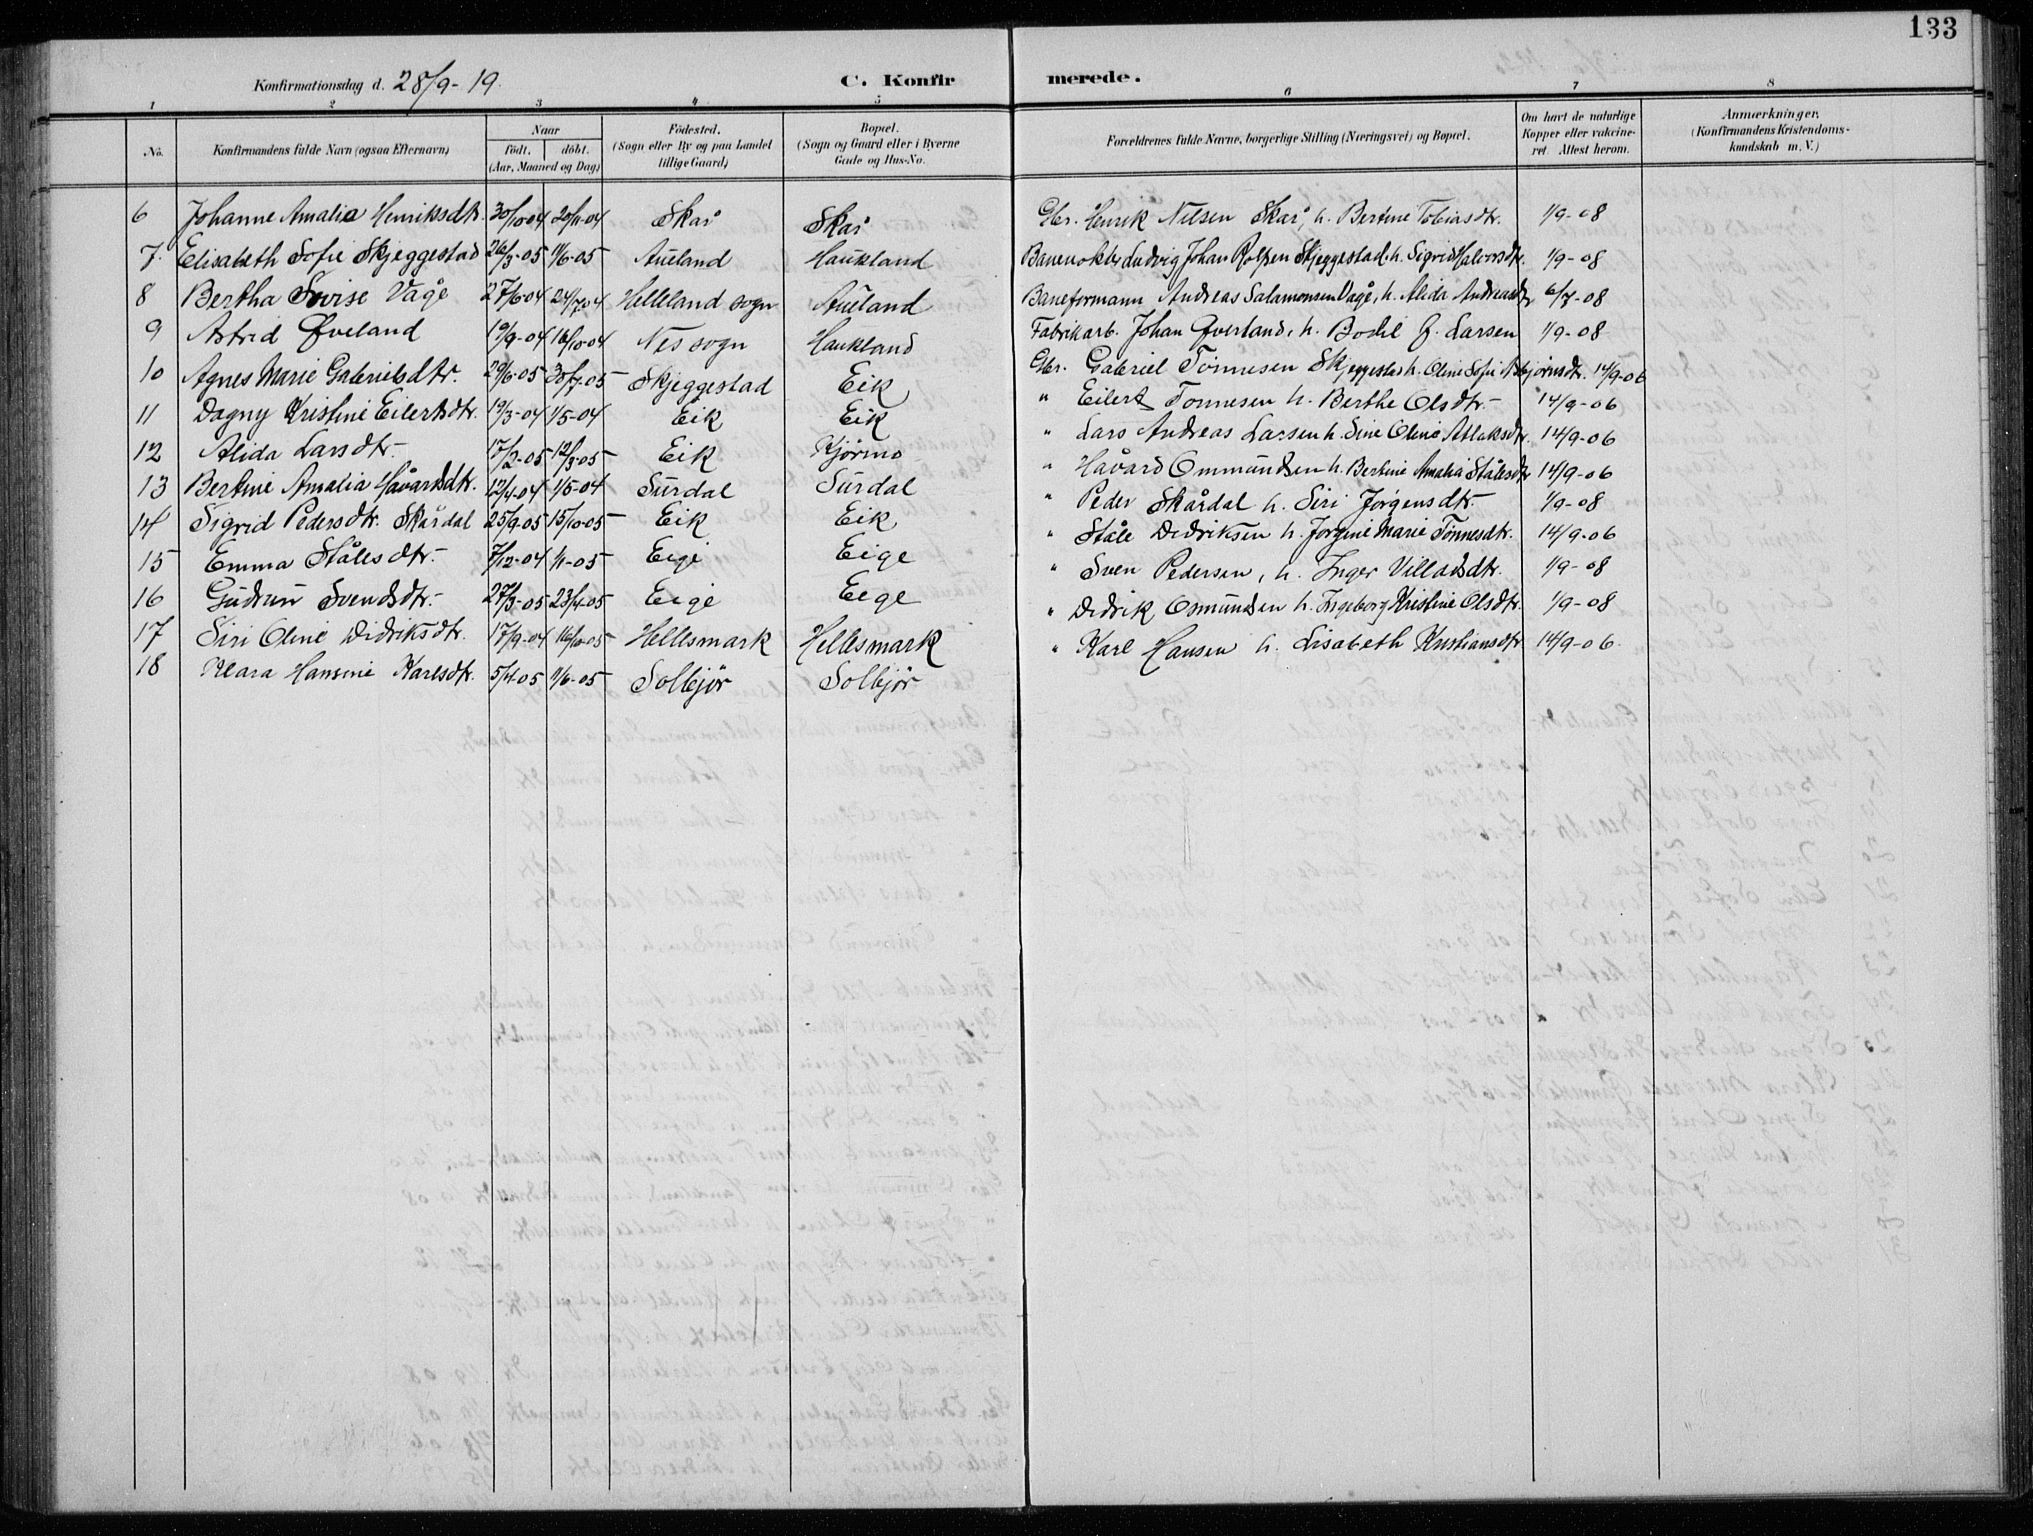 133
Konfirmationsdag d. 28/9-19. C. Konfirmerede.
1 2 3 4 5 6 7 8
No. Konfirmandens fulde Navn (ogsaa Efternavn) Naar født. døbt. (Aar, Maaned og Dag) Fødested. (Sogn eller By og paa Landet tillige Gaard) Bopæl. (Sogn og Gaard eller i Byerne Gade og Hus-No. Forældrenes fulde Navne, borgerlige Stilling (Næringsvei) og Bopæl. Om havt de naturlige Kopper eller vakcineret. Attest herom. Anmærkninger. (Konfirmandens Kristendomskundskab m. V.)
6 Johanne Amalia Henriksdtr. 30/10-04 20/11-04 Skår Skår Gbr. Henrik Nilsen Skår, h. Bertine Tobiasdtr. 1/9-08
7. Elisabeth Sofie Skjeggestad 26/3-05 11/6-05 Aueland Haukland Banevokter Ludvig Johan Rolfsen Skjeggestad h. Sigrid Halvorsdtr. 1/9-08
8 Bertha Lovise Våge 27/6-04 24/7-04 Helleland sogn Aueland Baneformann Andreas Salamonsen Våge, h. Alida Andreasdtr 6/7-08
9 Astrid Øveland 19/9-04 16/10-04 Nes sogn Haukland Fabrikarb. Johan Øverland, h. Bodil G. Larsen 1/9-08
10 Agnes Marie Gabrielsdtr. 29/6-05 30/7-05 Skjeggestad Eik Gbr. Gabriel Tønnesen Skjeggestad h. Oline Sofie Asbjørnsdtr. 14/9-06
11 Dagny Kristine Eilertsdtr. 19/3-04 1/5-04 Eik Eik " Eilert Tønnesen h. Berthe Olsdtr. 14/9-06
12 Alida Larsdtr. 17/2-05 12/3-05 Eik Kjørmo " Lars Andreas Larsen h. Sine Oline Atlaksdtr. 14/9-06
13 Bertine Amalia Håvardsdtr. 12/4-04 1/5-04 Surdal Surdal " Håvard Ommundsen h. Bertine Amalia Ståledtr 14/9-06
14 Sigrid Pedersdtr. Skårdal 25/9-05 15/10-05 Eik Eik " Peder Skårdal h. Siri Jørgensdtr. 1/9-08
15 Emma Ståledtr. 7/12-04 1/1-05 Eige Eige " Ståle Didriksen h. Jørgine Marie Tønnesdtr. 14/9-06
16 Gudrun Svendsdtr. 27/3-05 23/4-05 Eige Eige " Sven Pedersen, h. Inger Villadsdtr. 1/9-08
17 Siri Oline Didriksdtr. 17/9-04 16/10-05 Hellesmark Hellesmark " Didrik Osmundsen h. Ingeborg Kristine Olsdtr. 1/9-08
18 Klara Hansine Karlsdtr. 5/4-05 11/6-05 Solbjør Solbjør " Karl Hansen h. Lisabeth Kristiansdtr 14/9-06.